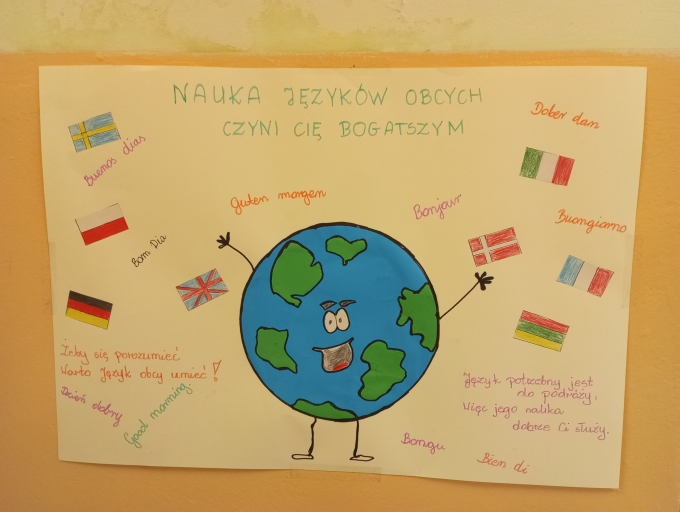 NAUKA JĘZYKÓW OBCYCH
CZYNI CIĘ BOGATSZYM
Dober dan
Buenos dias
Guten morgen
Bonjour
Buongiorno
Bom Dia
Żeby się porozumieć
Warto Język obcy umieć!
Dzień dobry
Good morning
Język potrzebny jest
do podróży,
Więc jego nauka
dobrze Ci służy.
Bongu
Bien di